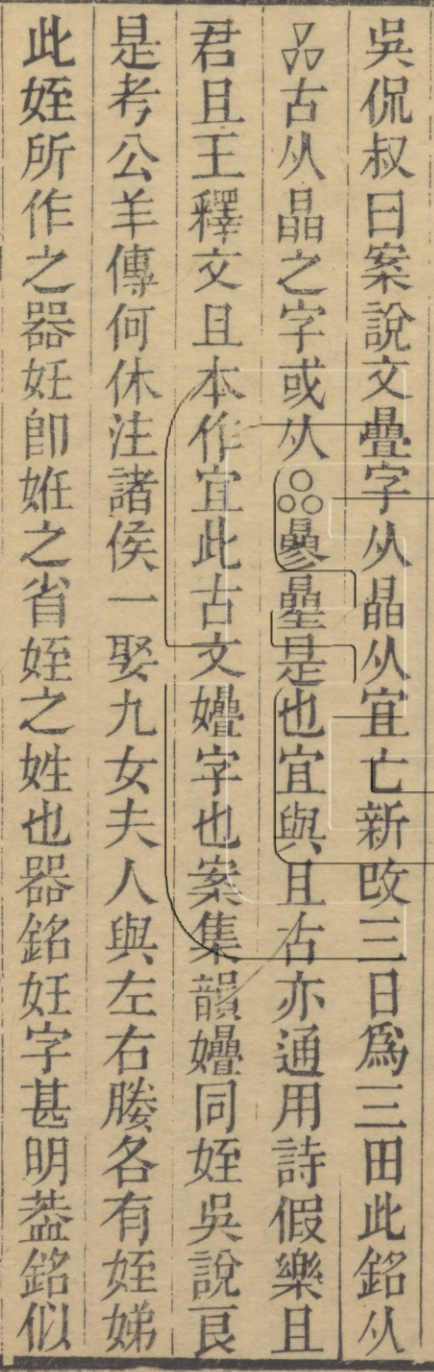 吳侃叔曰案說文疊字从晶从宜亡新改三日爲三田此銘从
品古从晶之字或从曑曐是也宜與且古亦通用詩假樂且
君且王釋文且本作宜此古文㜼字也案集韻㜼同姪吳說良
是考公羊傳何休注諸侯一娶九女夫人與左右媵各有姪娣
此姪所作之器妊卽姙之省姪之姓也器銘妊字甚明葢銘似